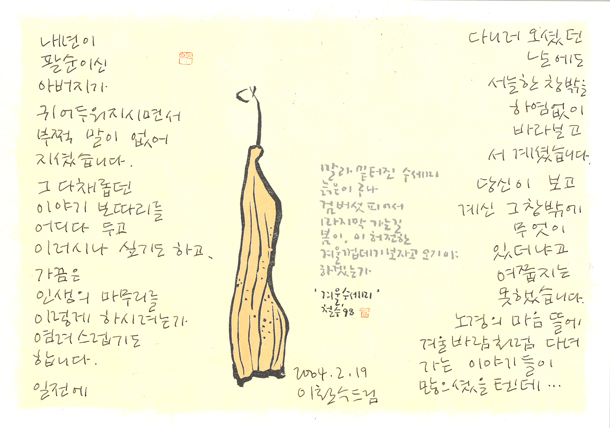 내년이
팔순이신
아버지가
귀 어두워지시면서
부쩍 말이 없어
지셨습니다.
그 다채롭던
이야기 보따리를
어디다 두고
이러시나 싶기도 하고,
가끔은
인생의 마무리를
이렇게 하시려는가
염려스럽기도
합니다.
일전에
말라, 밑터진 수세미
늙은이
검버섯 피어서
가는길
봄이, 이 허전한
겨울껍데기 보자고
하겠는가
'겨울수세미'
철수98
2004.2.19
이철수드림
다니러 오셨던
날에도
서늘한 창밖을
하염없이
바라보고
서 계셨습니다.
당신이 보고
계신 그 창밖에
무엇이
있더냐고
여쭙지는
못했습니다.
노경의 마음 뜰에
겨울바람처럼 다녀
가는 이야기들이
많으셨을 텐데…